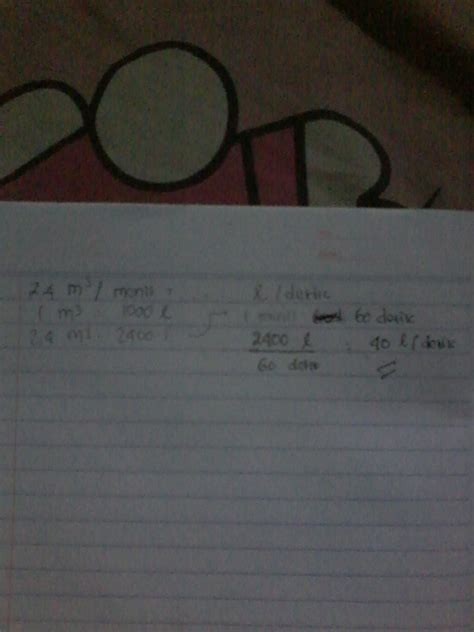 2,4 m³/menit = .... l/detik
1 m³ = 1000 l
2,4 m³ = 2400 l → 1 menit = 60 detik
2400 l = 40 l/detik
60 detik